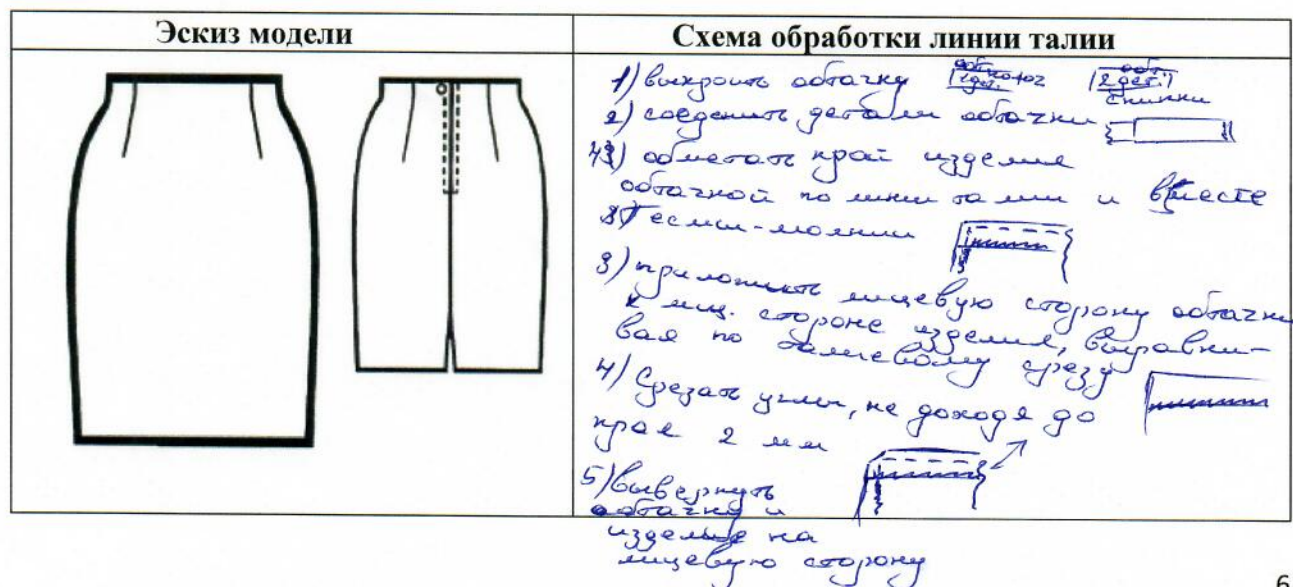 Эскиз модели
Схема обработки линии талии
1) выкроить обтачку
обт. 1 дет.
обт. 2 дет. спинки
2) соединить детали обтачки
4) обметать край изделия
обтачкой по линии талии и вместе
тесьмы-молнии
3) приложить лицевую сторону обтачки
к лиц. стороне изделия, выравни-
вая по талиевому срезу
4) Срезать углы, не доходя до
края 2 мм
5) вывернуть
обтачку и
изделие на
лицевую сторону
6